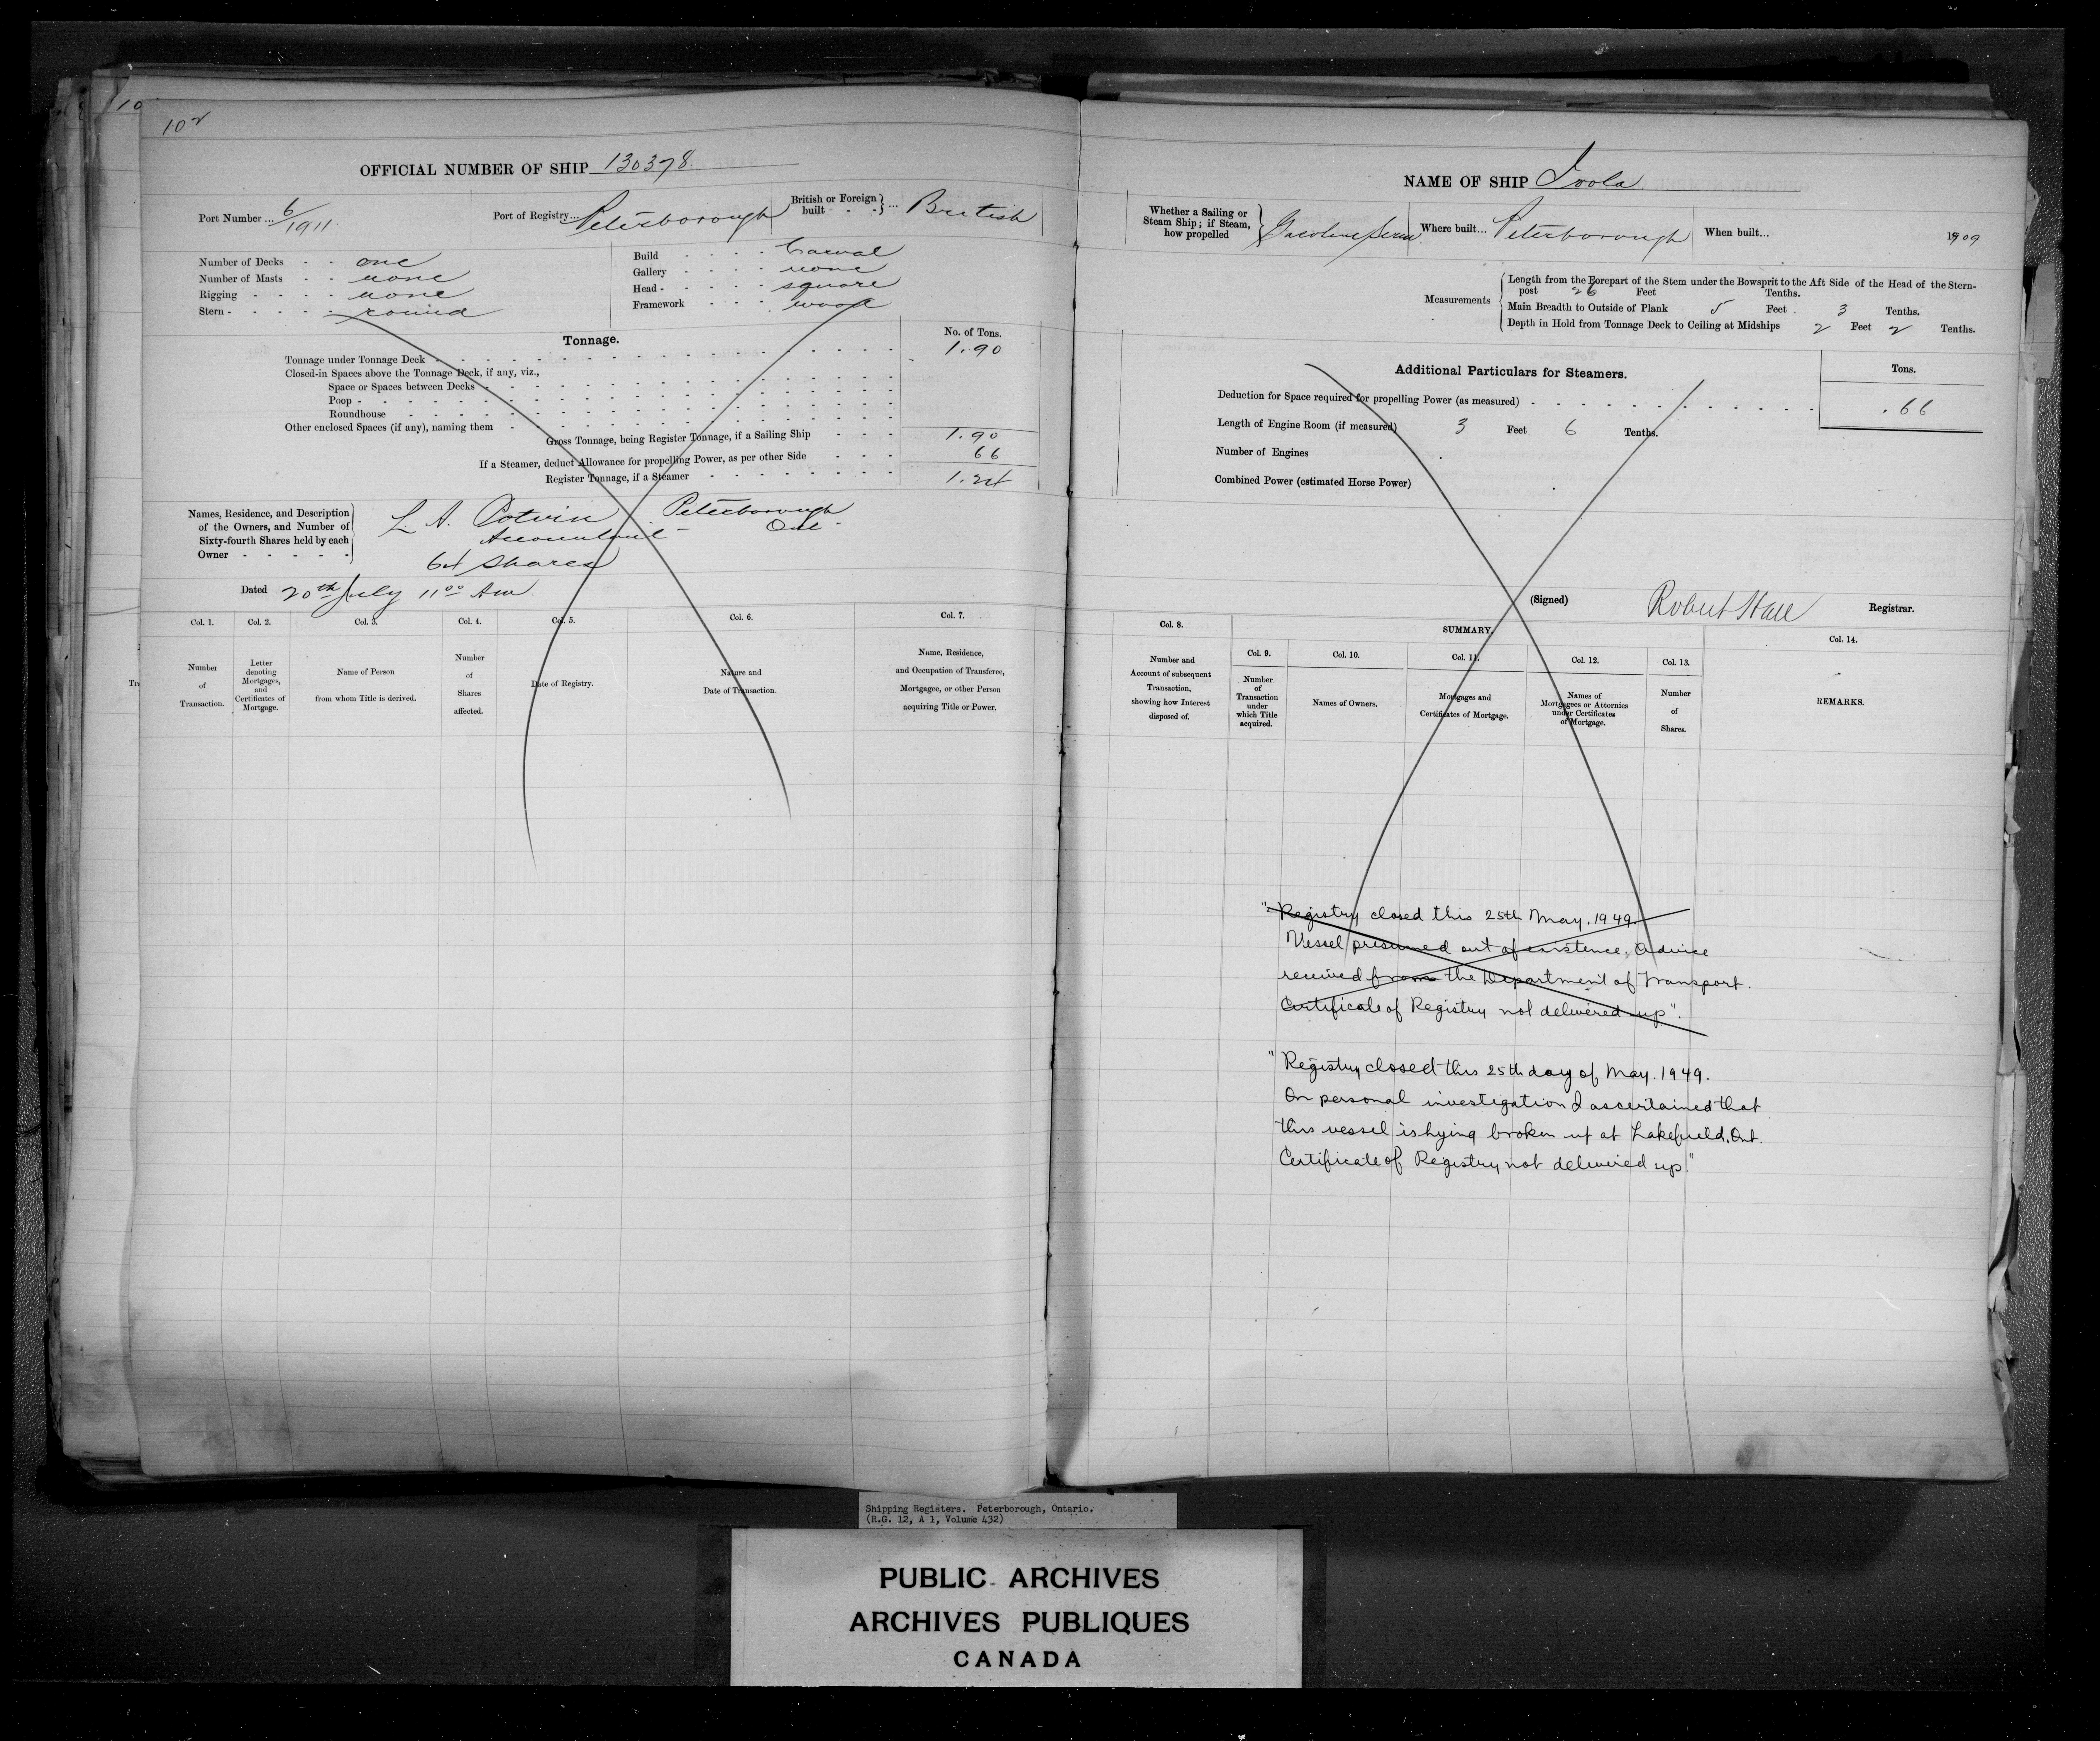 10
102
OFFICIAL NUMBER OF SHIP 130378.
Port Number ... 6/1911.
Port of Registry... Peterborough
British or Foreign built - - } ... British
Number of Decks - - one
Number of Masts - - none
Rigging - - - - none
Stern - - - - - round
Build - - - - Carval
Gallery - - - - none
Head - - - - - square
Framework - - - wood
Tonnage.
No. of Tons.
Tonnage under Tonnage Deck - 1.90
Closed-in Spaces above the Tonnage Deck, if any, viz.,
Space or Spaces between Decks -
Poop -
Roundhouse -
Other enclosed Spaces (if any), naming them -
Gross Tonnage, being Register Tonnage, if a Sailing Ship - - - 1.90
If a Steamer, deduct Allowance for propelling Power, as per other Side - - - 66
Register Tonnage, if a Steamer - 1.24
Names, Residence, and Description of the Owners, and Number of Sixty-fourth Shares held by each Owner - - - - -
L. A. Potvin Peterborough
Accountant - Ont -
64 Shares
Dated 20th July 11 00 Am.
Col. 1. Number of Transaction.
Col. 2. Letter denoting Mortgages, and Certificates of Mortgage.
Col. 3. Name of Person from whom Title is derived.
Col. 4. Number of Shares affected.
Col. 5. Date of Registry.
Col. 6. Nature and Date of Transaction.
Col. 7. Name, Residence, and Occupation of Transferee, Mortgagee, or other Person acquiring Title or Power.
NAME OF SHIP
Whether a Sailing or Steam Ship; if Steam, how propelled } Gasoline Screw
Where built... Peterborough
When built... 1909
Measurements
Length from the Forepart of the Stem under the Bowsprit to the Aft Side of the Head of the Stern-
post 26 Feet Tenths.
Main Breadth to Outside of Plank 5 Feet 3 Tenths.
Depth in Hold from Tonnage Deck to Ceiling at Midships 2 Feet 2 Tenths.
Additional Particulars for Steamers.
Tons.
Deduction for Space required for propelling Power (as measured) - .66
Length of Engine Room (if measured) 3 Feet 6 Tenths.
Number of Engines
Combined Power (estimated Horse Power)
(Signed) Robert Hall Registrar.
Col. 8. Number and Account of subsequent Transaction, showing how Interest disposed of.
SUMMARY.
Col. 9. Number of Transaction under which Title acquired.
Col. 10. Names of Owners.
Col. 11. Mortgages and Certificates of Mortgage.
Col. 12. Names of Mortgagees or Attornies under Certificates of Mortgage.
Col. 13. Number of Shares.
Col. 14. REMARKS.
"Registry closed this 25th May. 1949.
Vessel presumed out of existence. Advice
received from the Department of Transport.
Certificate of Registry not delivered up".
"Registry closed this 25th day of May. 1949.
On personal investigation I ascertained that
this vessel is lying broken up at Lakefield, Ont.
Certificate of Registry not delivered up."
Shipping Registers. Peterborough, Ontario.
(R.G. 12, A 1, Volume 432)
PUBLIC ARCHIVES
ARCHIVES PUBLIQUES
CANADA